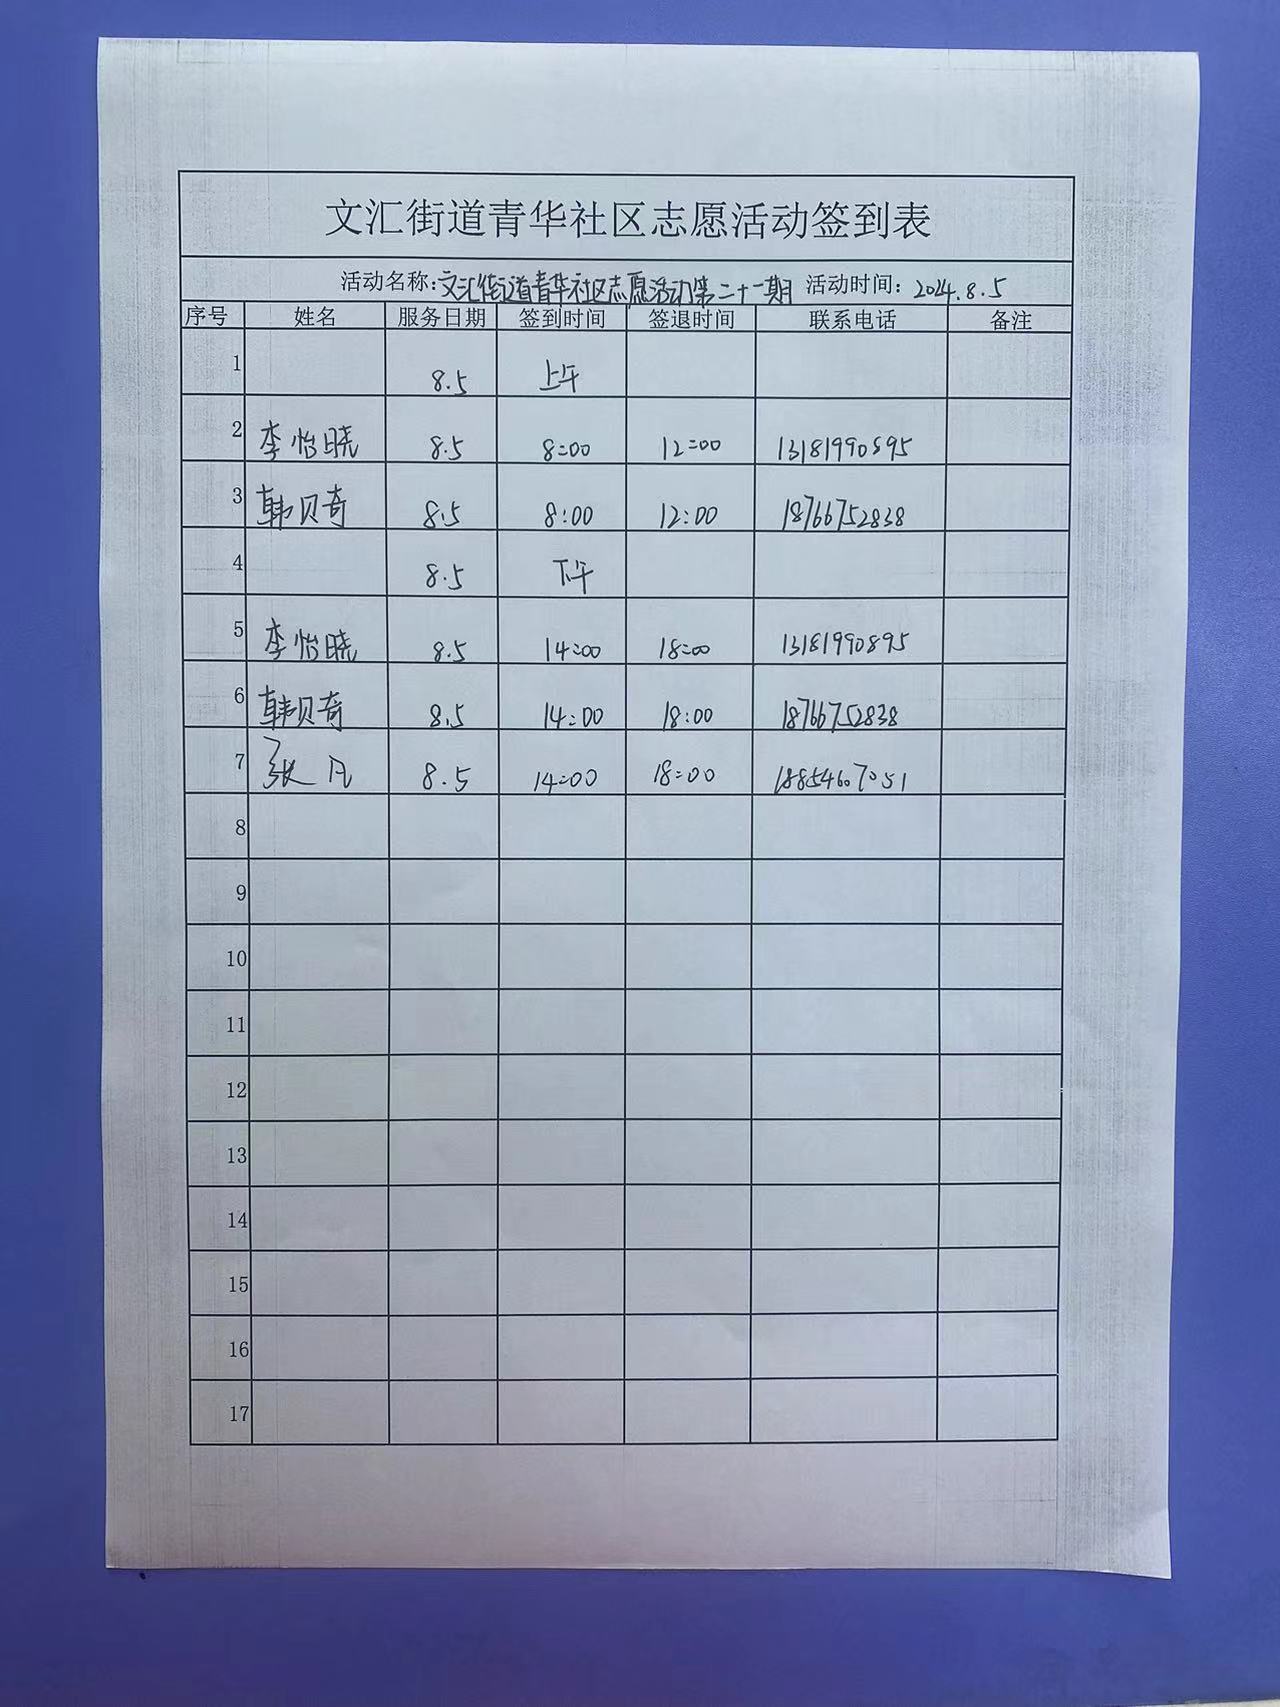 文汇街道青华社区志愿活动签到表
活动名称:文汇街道青华社区志愿活动第二十一期 活动时间: 2024.8.5
序号 姓名 服务日期 签到时间 签退时间 联系电话 备注
1 8.5 上午
2 李怡晓 8.5 8:00 12:00 13181990895
3 韩贝奇 8.5 8:00 12:00 18766752838
4 8.5 下午
5 李怡晓 8.5 14:00 18:00 13181990895
6 韩贝奇 8.5 14:00 18:00 18766752838
7 张凡 8.5 14:00 18:00 18854607051
8
9
10
11
12
13
14
15
16
17